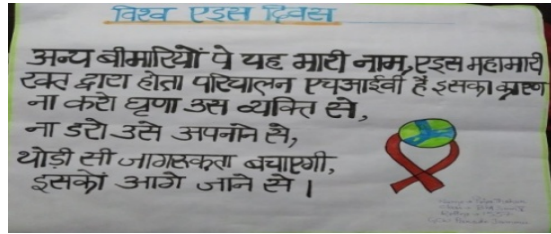 विश्व एड्स दिवस
अन्य बीमारियों पे यह भारी नाम, एड्स महामारी
रक्त द्वारा होता परिचालन एचआईवी है इसका कारण
ना करो घृणा उस व्यक्ति से,
ना डरो उसे अपनाने से,
थोड़ी सी जागरूकता बचाएगी,
इसको आगे जाने से।